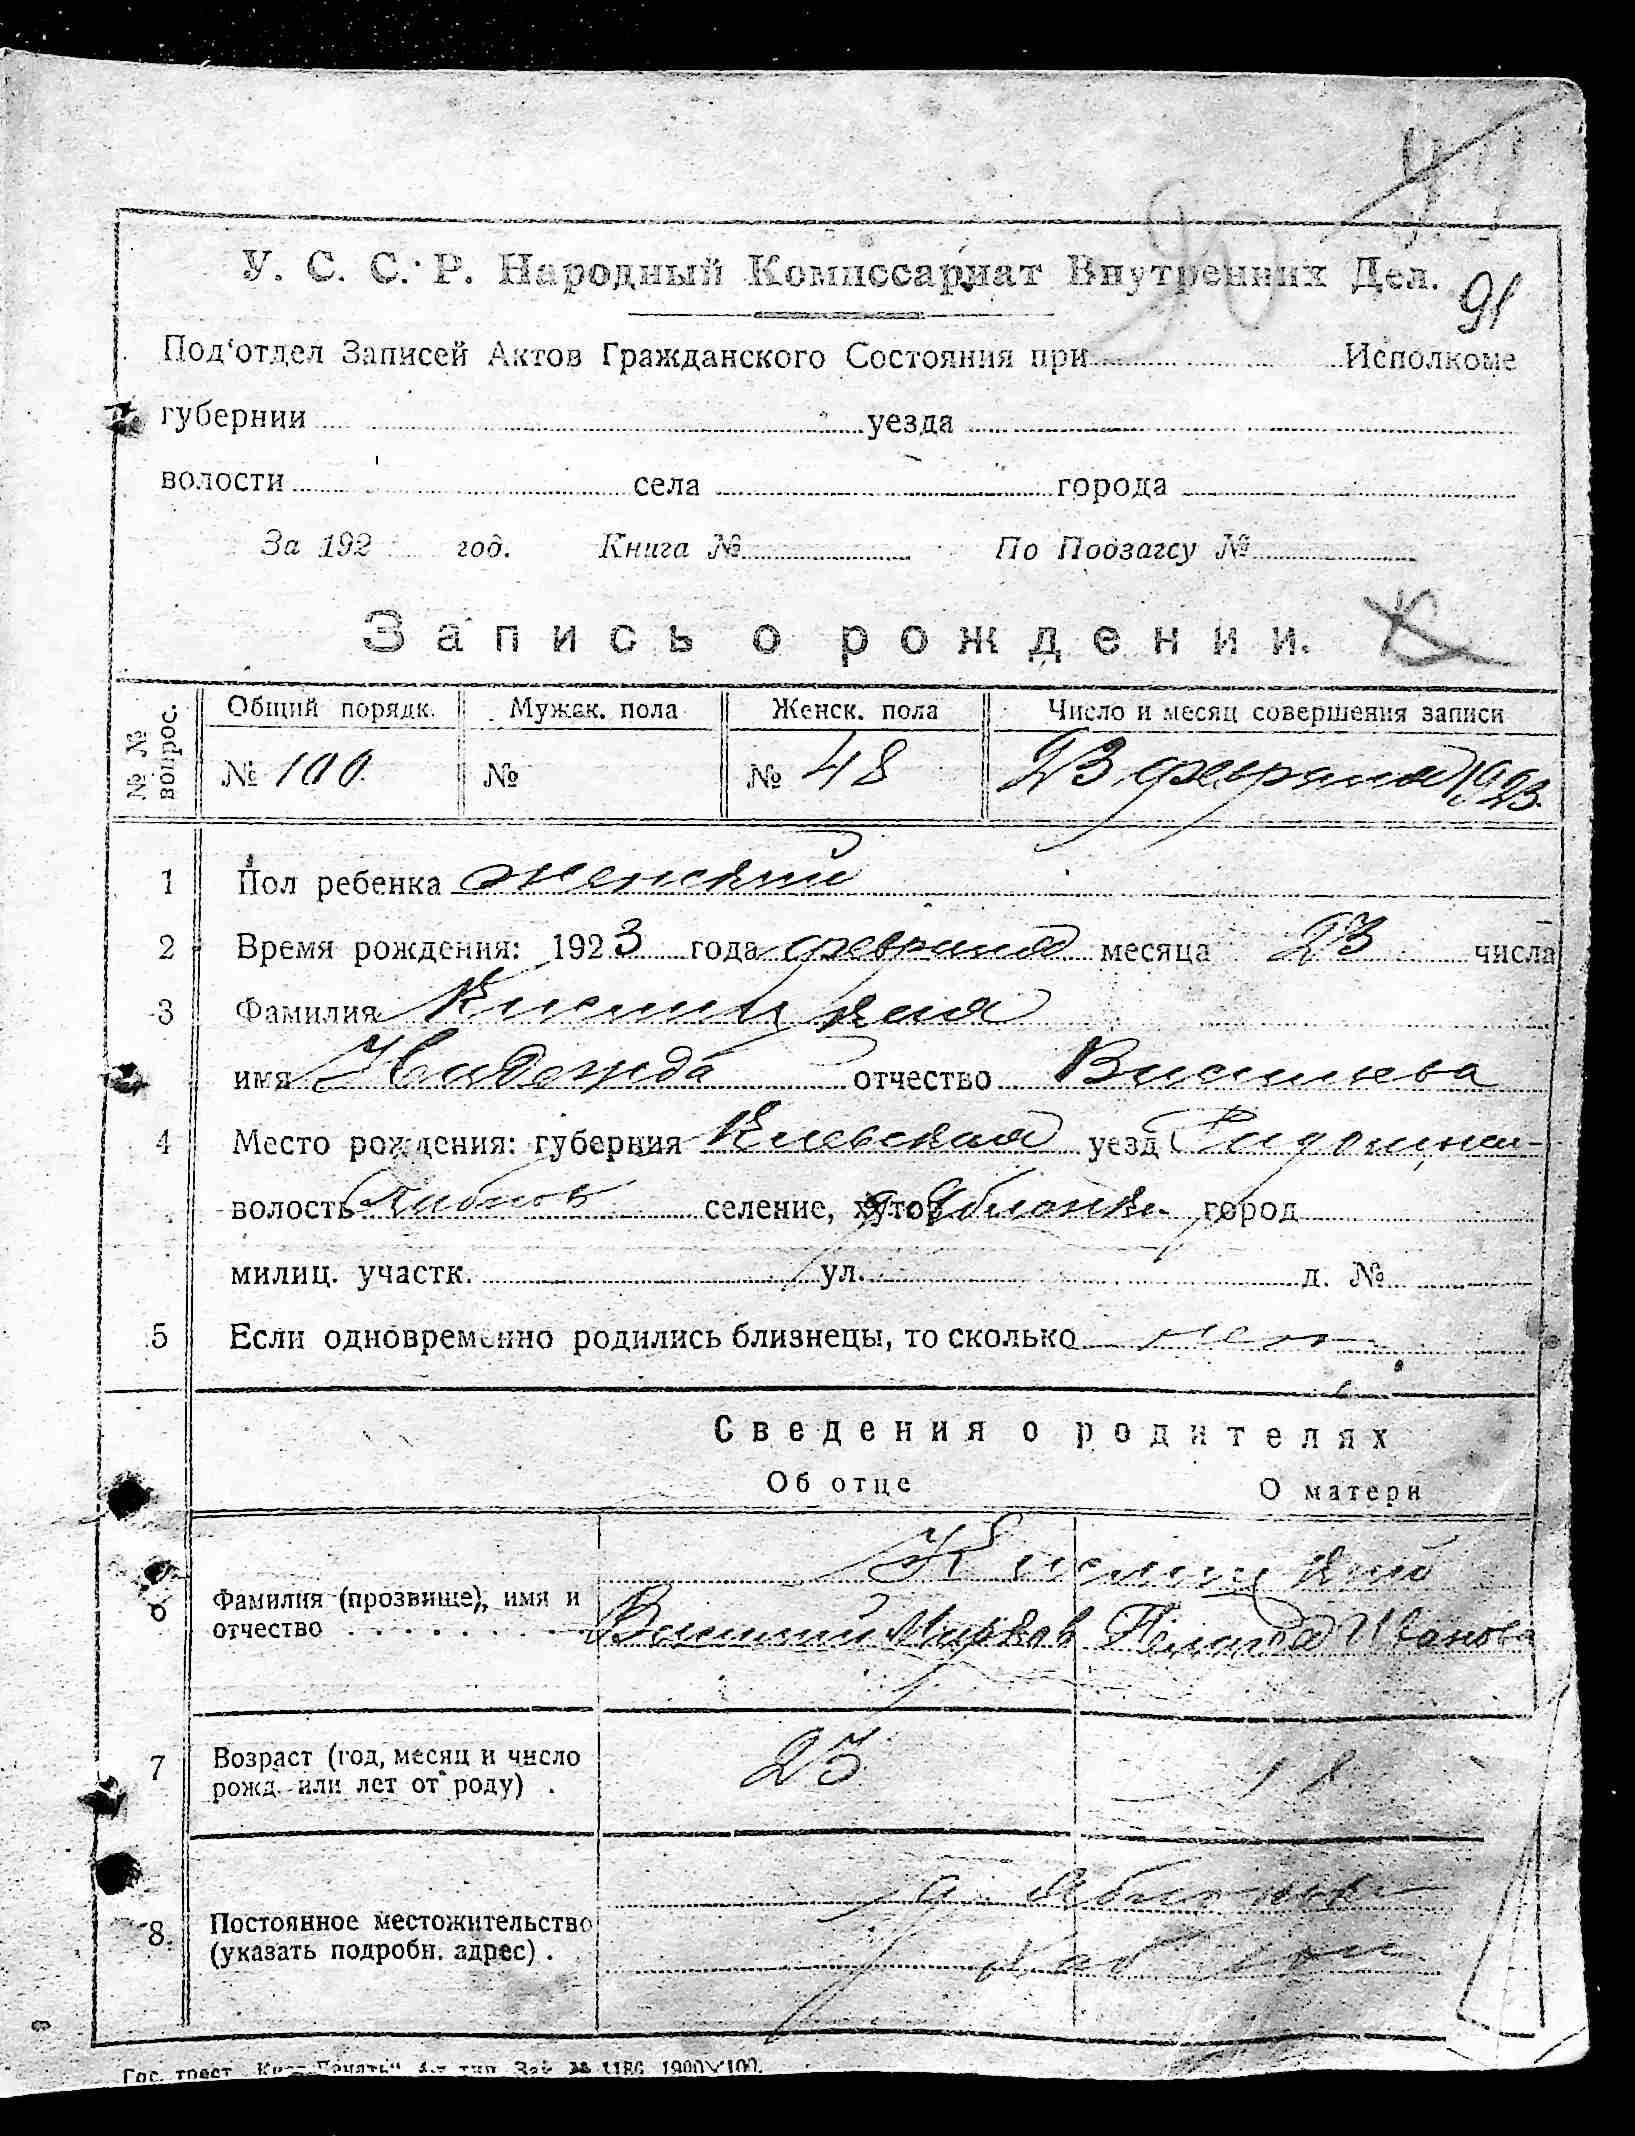 91
У. С. С. Р. Народный Комиссариат Внутренних Дел.
Под'отдел Записей Актов Гражданского Состояния при Исполкоме
губернии уезда
волости села города
За 192 год. Книга № По Подзагсу №
Запись о рождении.
№ № вопрос. Общий порядк. Мужск. пола Женск. пола Число и месяц совершения записи
№ 100 № № 48 23 февраля 1923
1 Пол ребенка женский
2 Время рождения: 1923 года февраля месяца 23 числа
3 Фамилия
имя Надежда отчество Васильева
4 Место рождения: губерния Киевская уезд
волость селение, хутор Яблонька город
милиц. участк. ул. д. №
5 Если одновременно родились близнецы, то сколько нет
Сведения о родителях
Об отце О матери
6 Фамилия (прозвище), имя и
отчество Василий Марков Пелагея Иванова
7 Возраст (год, месяц и число
рожд. или лет от роду) . 23 18
8. Постоянное местожительство
(указать подробн. адрес) .